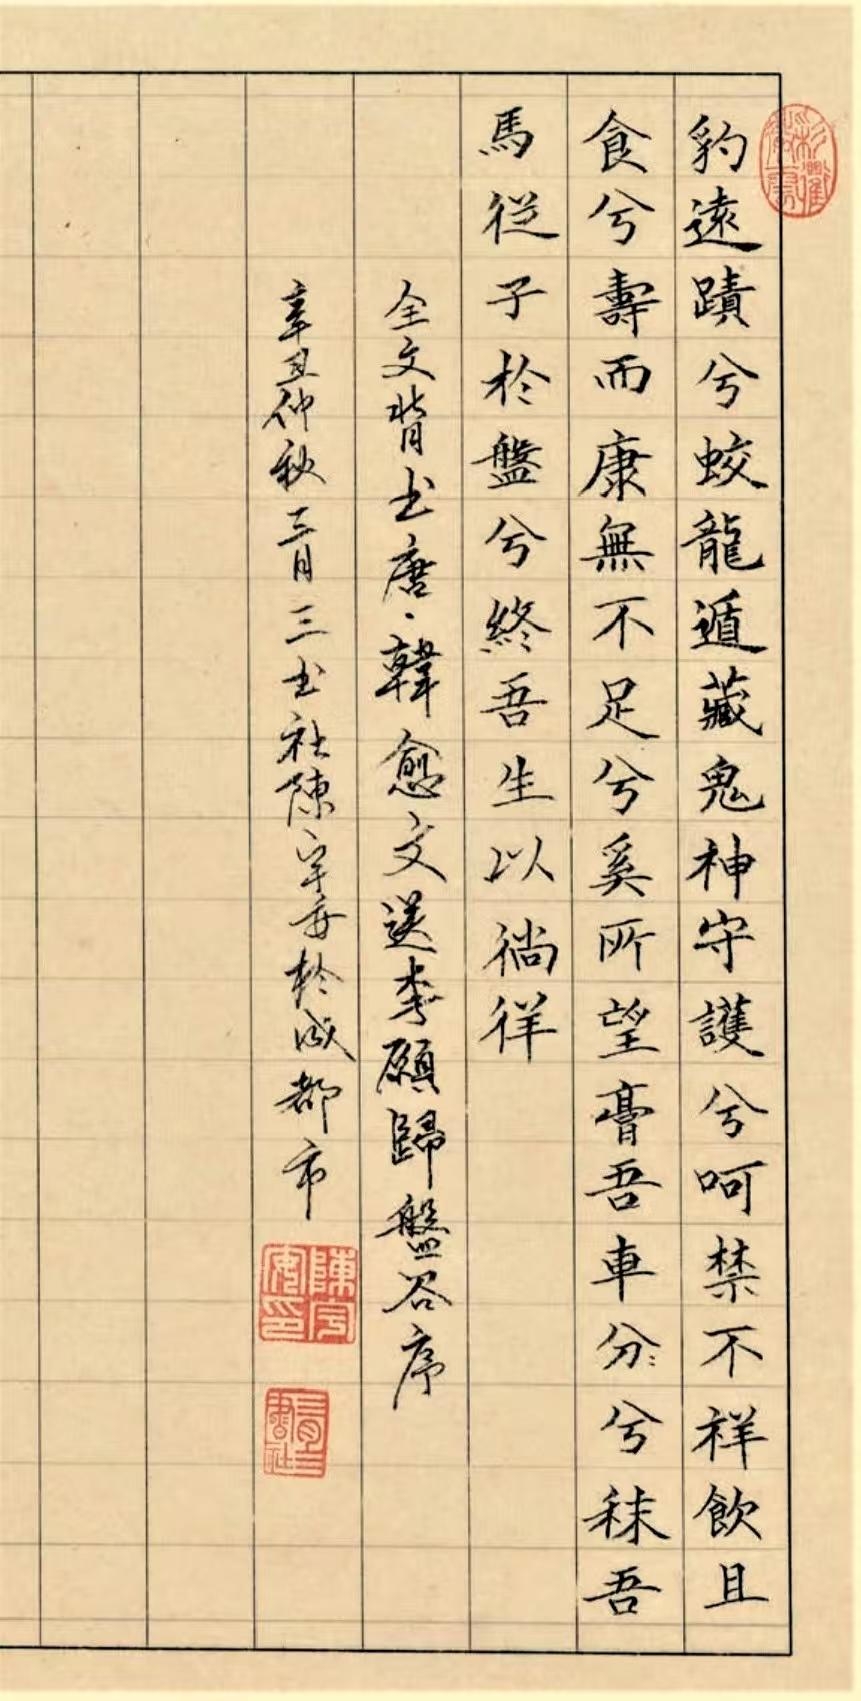 豹遠蹟兮蛟龍遁藏鬼神守護兮呵禁不祥飲且
食兮壽而康無不足兮奚所望膏吾車分兮秣吾
馬從子於盤兮終吾生以徜徉
全文背书唐、韓愈文送李願歸盤谷序
辛丑仲秋三月三书社陳宇安於成都市
陳宇安印
三月三書社